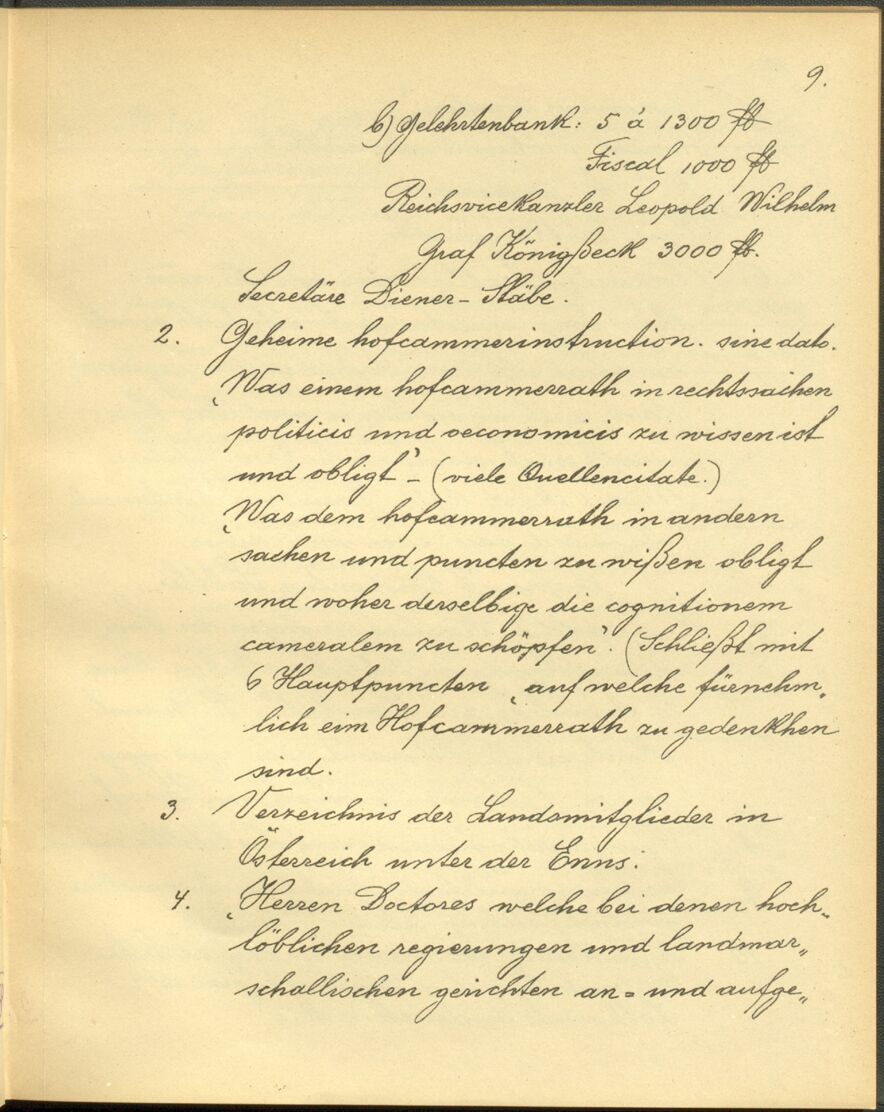 9.
b) Gelehrtenbank: 5 à 1300 fl
Fiscal 1000 fl
Reichsvicekanzler Leopold Wilhelm
Graf Königßeck 3000 fl.
Secretäre Diener - Stäbe.
2. Geheime hofcammerinstruction. sine dato.
„Was einem hofcammerrath in rechtssachen
politicis und oeconomicis zu wissen ist
und obligt“ - (viele Quellencitate.)
„Was dem hofcammerrath in andern
sachen und puncten zu wißen obligt
und woher derselbige die cognitionem
cameralem zu schöpfen“. (Schließt mit
6 Hauptpuncten „auf welche fürnehm„
lich eim Hofcammerrath zu gedenkhen
sind.
3. Verzeichnis der Landsmitglieder in
Österreich unter der Enns.
4. „Herren Doctores welche bei denen hoch„
löblichen regierungen und landmar„
schallischen gerichten an = und aufge„